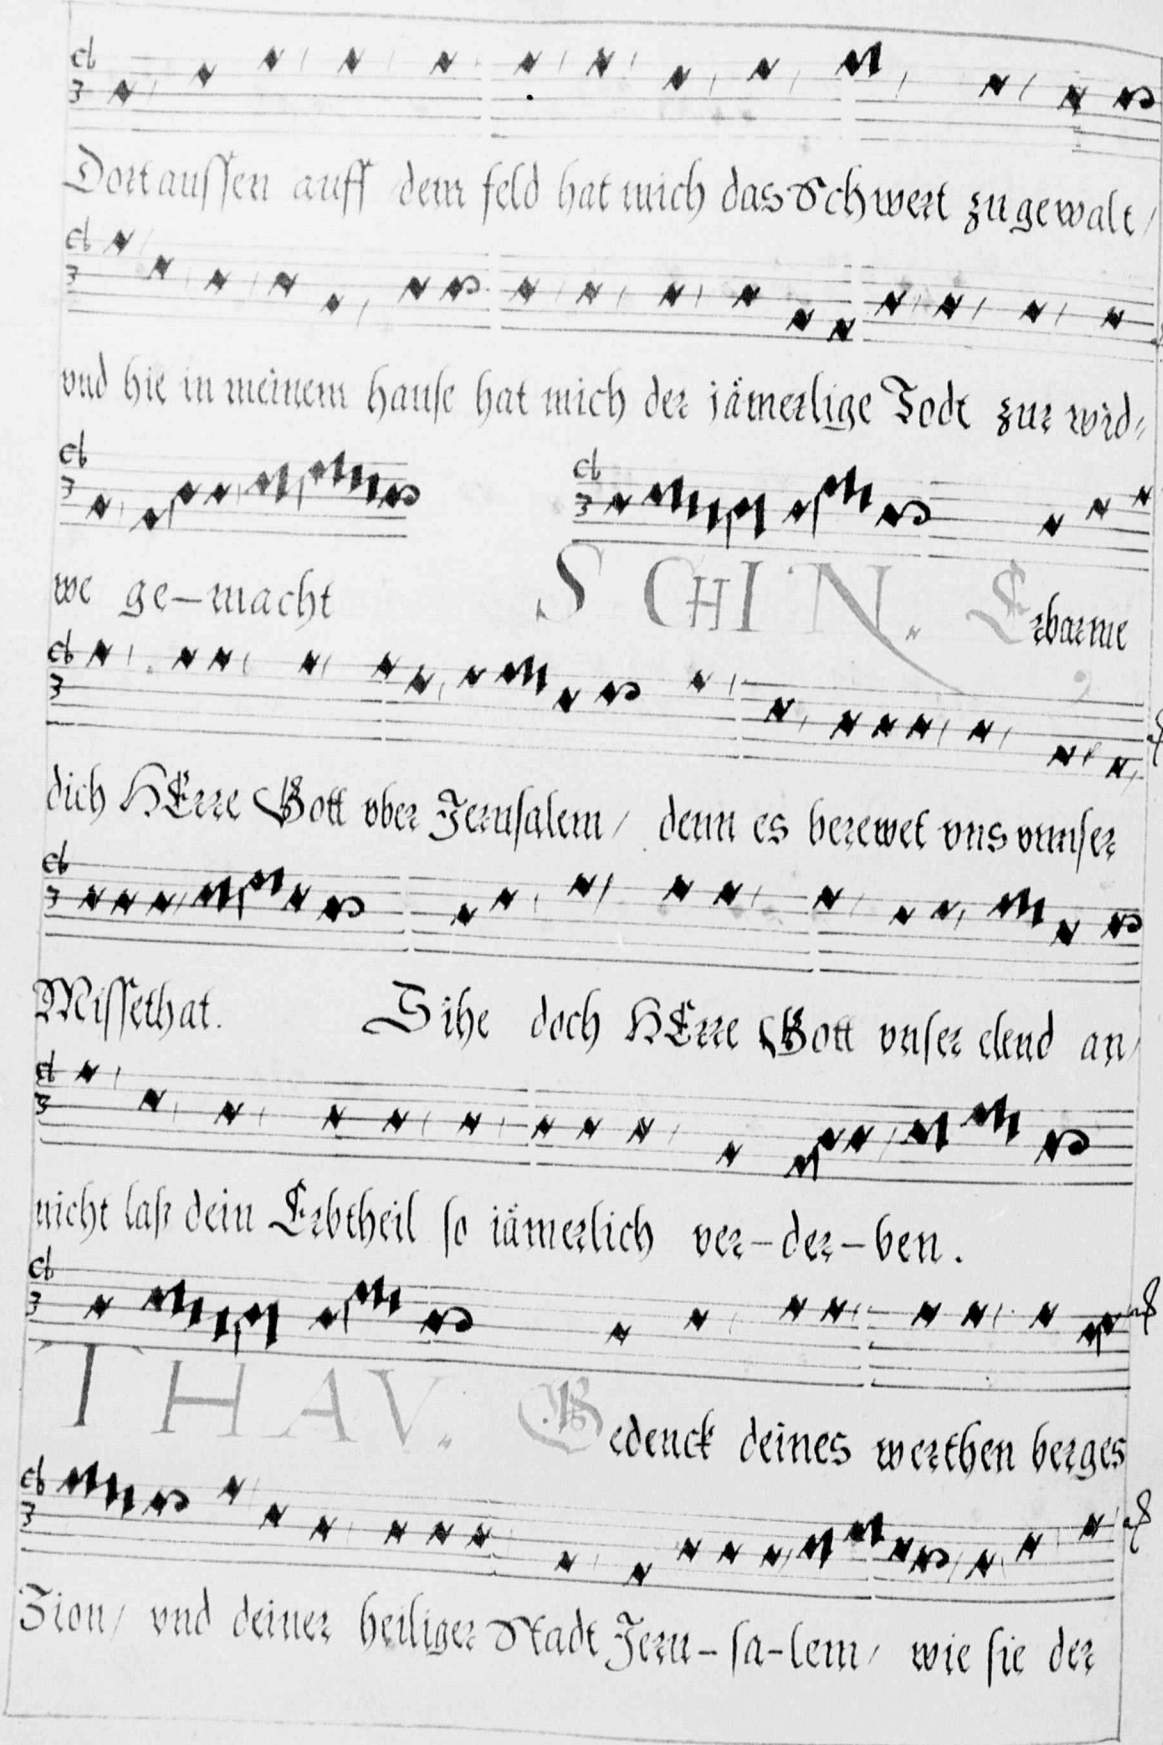 Dort aussen auff dem feld hat mich das Schwert zu gewalt /
vnd hie in meinem hause hat mich der jämerlige Todt zur wid⸗
we ge-macht SCHIN. Erbarme
dich HErre Gott vber Jerusalem / denn es berewet vns vnnser
Missethat. Sihe doch HErre Gott vnser elend an /
nicht laß dein Erbtheil so iämerlich ver-der-ben.
THAV. Gedenck deines werthen berges
Zion / vnd deiner heiliger Stadt Jeru-sa-lem / wie sie der